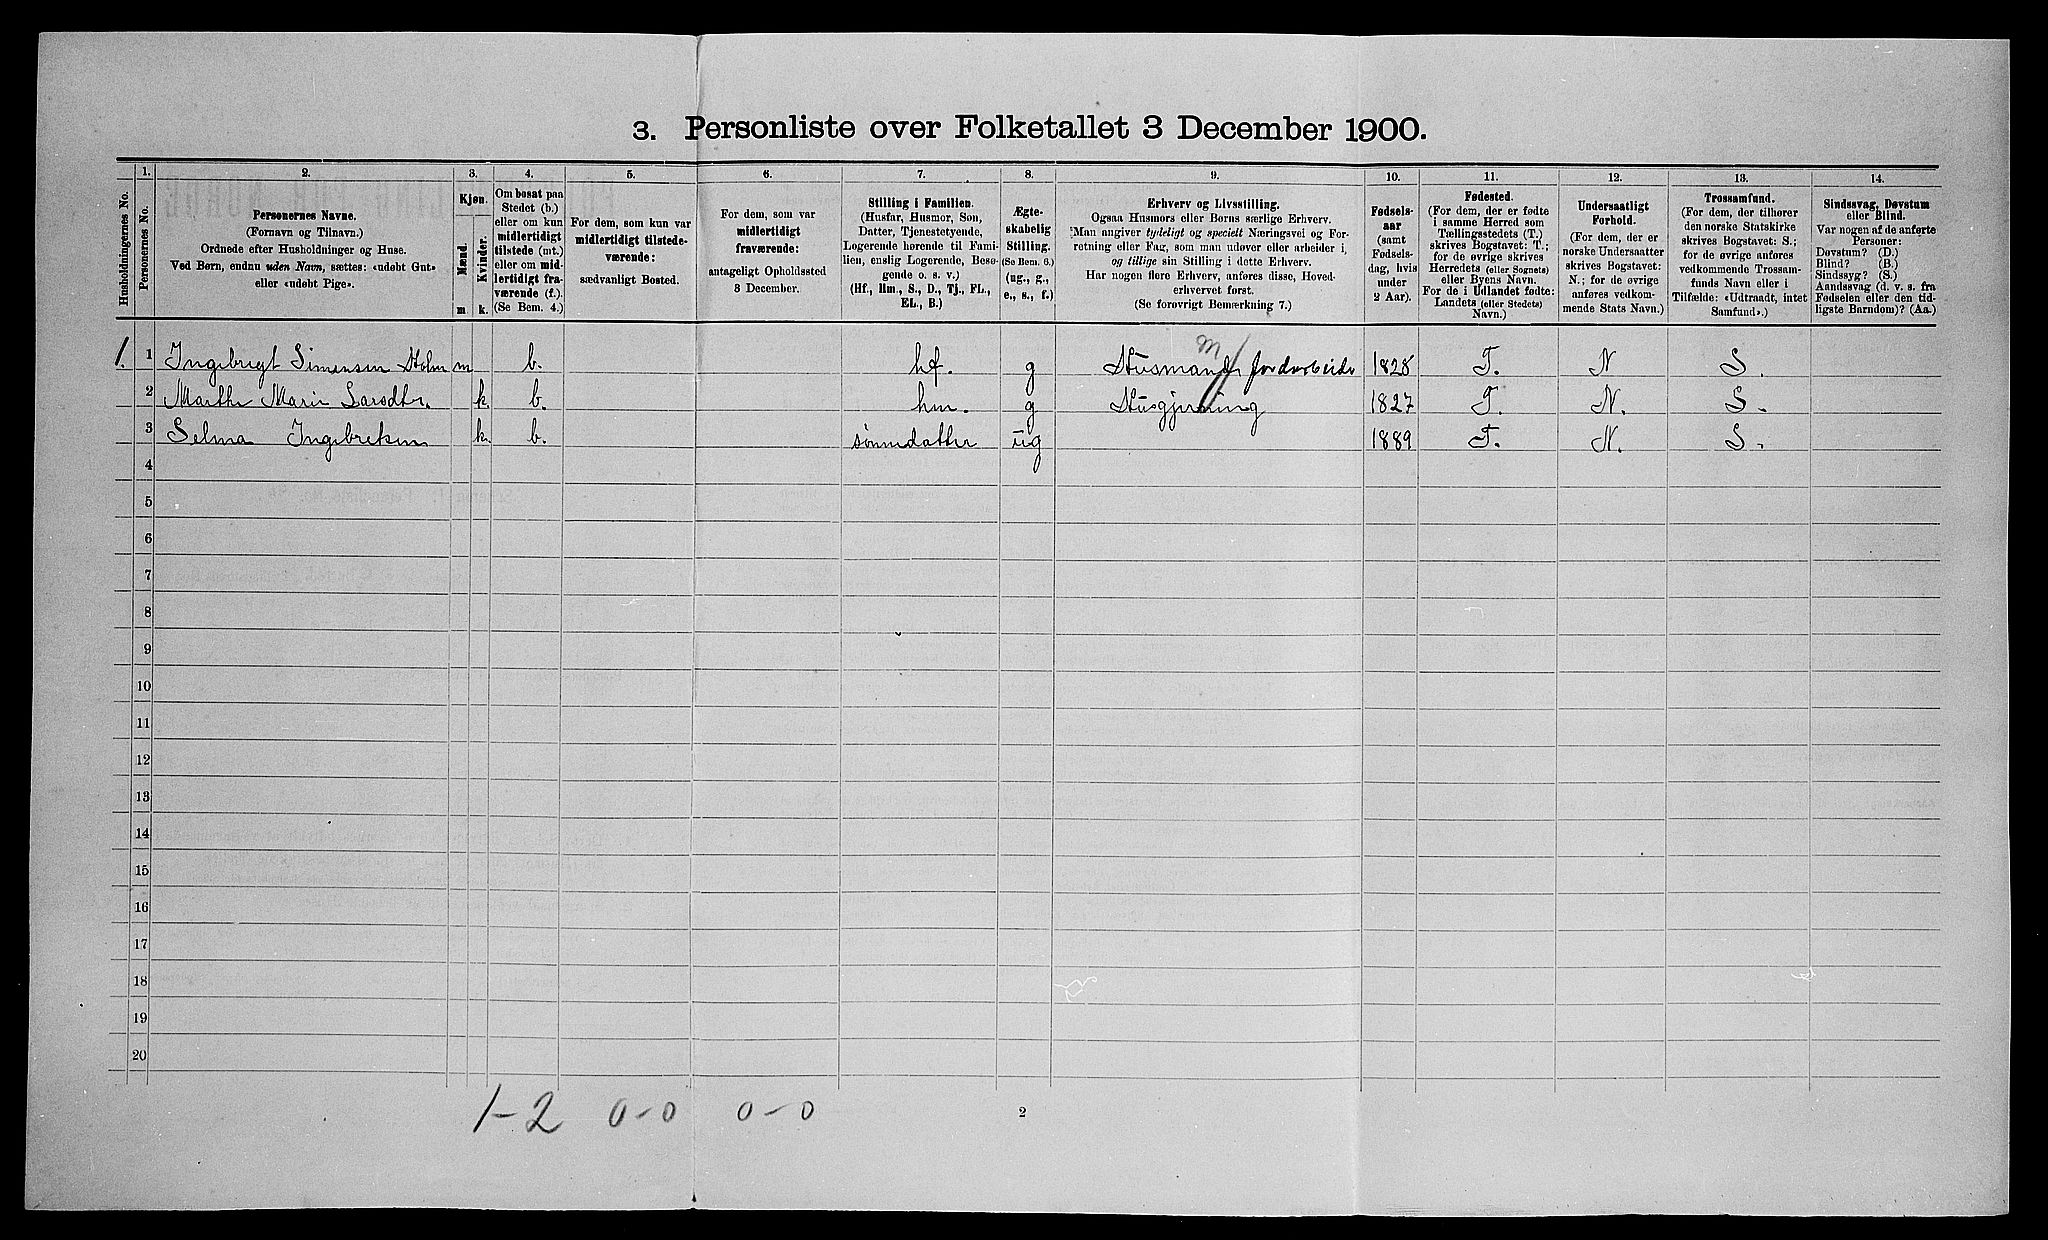 3. Personliste over Folketallet 3 December 1900.
Husholdningernes No.
1.
Personernes No.
2.
Personernes Navne.
(Fornavn og Tilnavn.)
Ordnede efter Husholdninger og Huse.
Ved Børn, endnu uden Navn, sættes: «udøbt Gut»
eller «udøbt Pige».
3.
Kjøn.
Mænd.
Kvinder.
m.
k.
4.
Om bosat paa
Stedet (b.)
eller om kun
midlertidigt
tilstede (mt.)
eller om mid-
lertidigt fra-
værende (f.).
(Se Bem. 4.)
5.
For dem, som kun var
midlertidigt tilstede-
værende:
sædvanligt Bosted.
6.
For dem, som var
midlertidigt
fraværende:
antageligt Opholdssted
3 December.
7.
Stilling i Familien.
(Husfar, Husmor, Søn,
Datter, Tjenestetyende,
Logerende hørende til Fami-
lien, enslig Logerende, Besø-
gende o. s. v.)
(Hf., Hm., S., D., Tj., FL.,
EL., B.)
8.
Ægte-
skabelig
Stilling.
(Se Bem. 6.)
(ug., g.,
e., s., f.)
9.
Erhverv og Livsstilling.
Ogsaa Husmors eller Børns særlige Erhverv.
Man angiver tydeligt og specielt Næringsvei og For-
retning eller Fag, som man udøver eller arbeider i,
og tillige sin Stilling i dette Erhverv.
Har nogen flere Erhverv, anføres disse, Hoved-
erhvervet først.
(Se forøvrigt Bemærkning 7.)
10.
Fødsels-
aar
(samt
Fødsels-
dag, hvis
under
2 Aar).
11.
Fødested.
(For dem, der er fødte
i samme Herred som
Tællingsstedets (T.)
skrives Bogstavet: T.;
for de øvrige skrives
Herredets (eller Sognets)
eller Byens Navn.
For de i Udlandet fødte:
Landets (eller Stedets)
Navn.)
12.
Undersaatligt
Forhold.
(For dem, der er
norske Undersaatter
skrives Bogstavet:
N.; for de øvrige
anføres vedkom-
mende Stats Navn.)
13.
Trossamfund.
(For dem, der tilhører
den norske Statskirke
skrives Bogstavet: S.;
for de øvrige anføres
vedkommende Trossam-
funds Navn eller i
Tilfælde: «Udtraadt, intet
Samfund».)
14.
Sindssvag, Døvstum
eller Blind.
Var nogen af de anførte
Personer:
Døvstum? (D.)
Blind? (B.)
Sindssyg? (S.)
Aandssvag (d. v. s. fra
Fødselen eller den tid-
ligste Barndom)? (Aa.)
1. 1 Ingebrigt Simensen Holm m b. hf. g Husmand, jordarbeide 1828 T. N S.
2 Marthe Marie Larsdtr. k. b. hm. g Husgjerning 1827 T. N. S.
3 Selma Ingebretsen k. b. sønnedatter ug 1889 T. N. S.
4
5
6
7
8
9
10
11
12
13
14
15
16
17
18
19
20
1-2 0-0 0-0
2